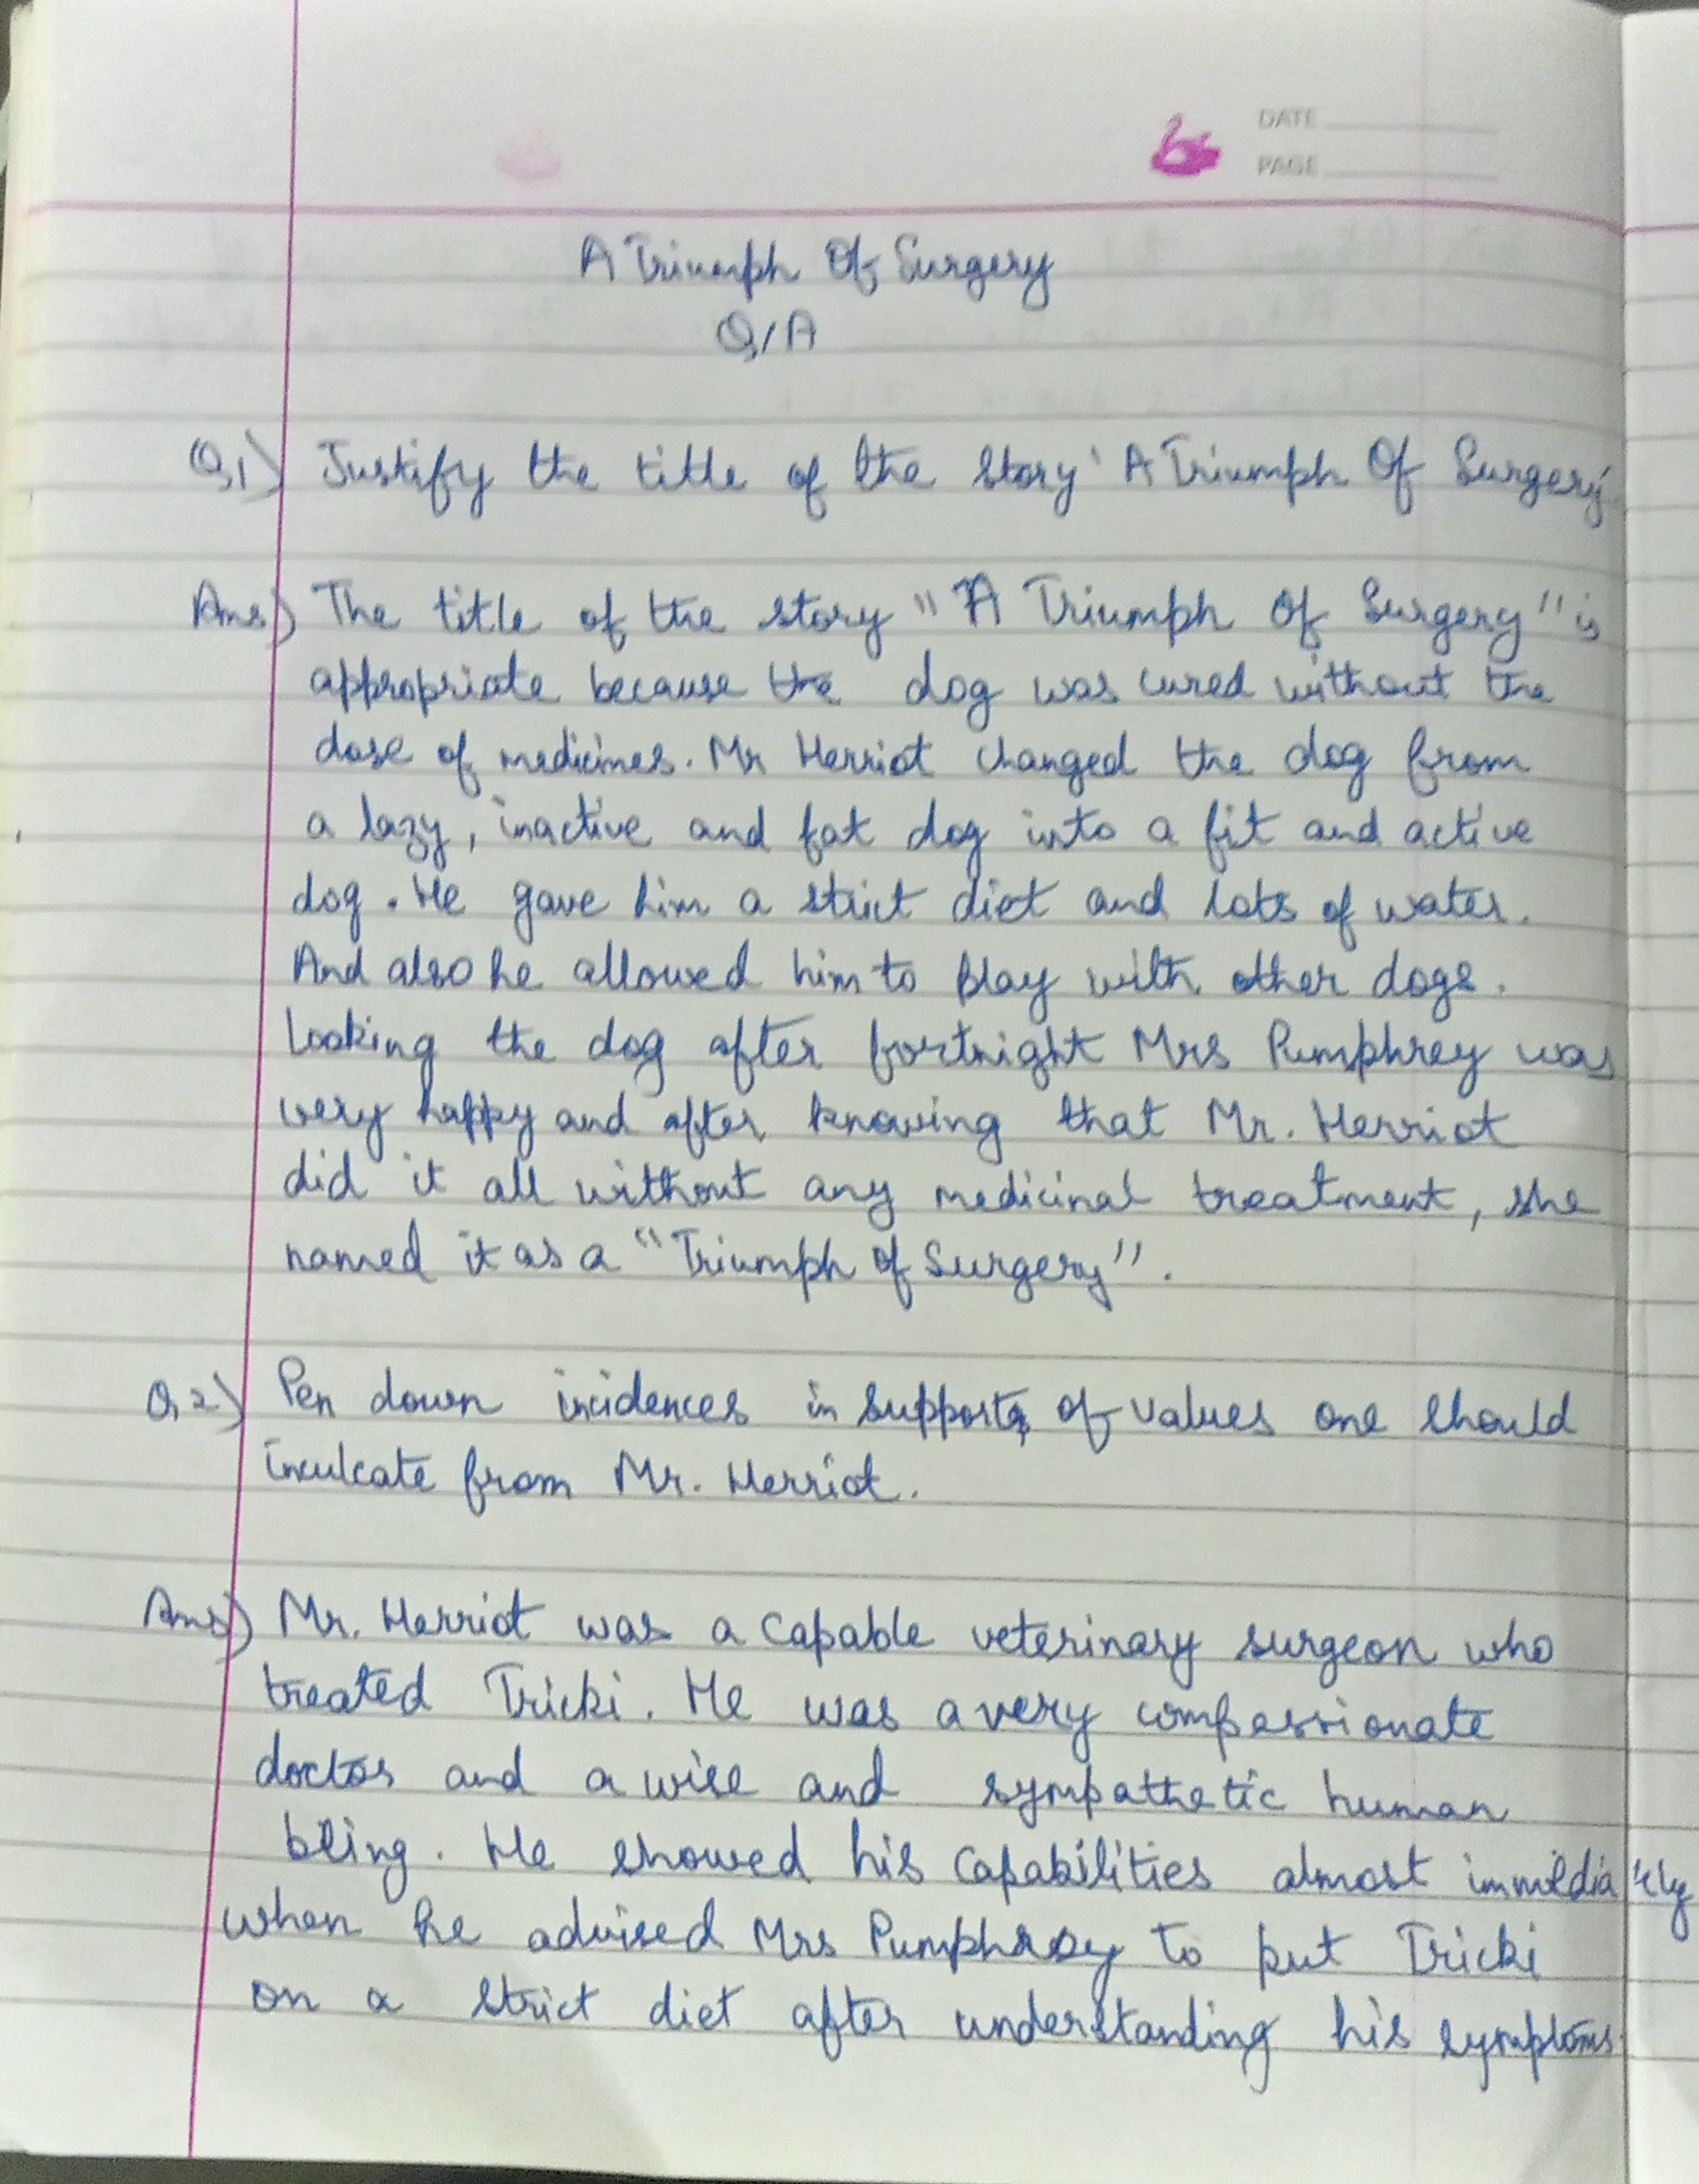 DATE
PAGE
A Triumph Of Surgery
Q/A
Q,1) Justify the title of the story 'A Triumph Of Surgery'
Ans) The title of the story "A Triumph Of Surgery" is
appropriate because the dog was cured without the
dose of medicines. Mr Herriot changed the dog from
a lazy, inactive and fat dog into a fit and active
dog. He gave him a strict diet and lots of water.
And also he allowed him to play with other dogs.
Looking the dog after fortnight Mrs Pumphrey was
very happy and after knowing that Mr. Herriot
did it all without any medicinal treatment, she
named it as a "Triumph of Surgery".
Q,2) Pen down incidences in support of values one should
inculcate from Mr. Herriot.
Ans) Mr. Herriot was a capable veterinary surgeon who
treated Tricki. He was a very compassionate
doctor and a wise and sympathetic human
being. He showed his capabilities almost immediately
when he advised Mrs Pumphrey to put Tricki
on a strict diet after understanding his symptoms